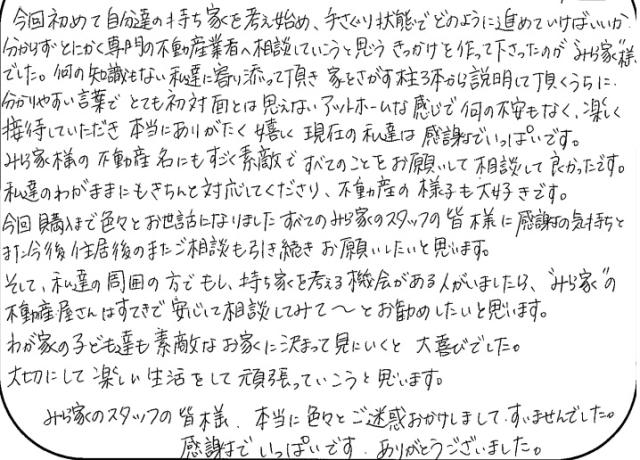 今回初めて自分達の持ち家を考え始め、手さぐり状態でどのように進めていけばいいか
分からずとにかく専門の不動産業者へ相談していこうと思うきっかけを作って下さったのが"みら家"様
でした。何の知識もない私達に寄り添って頂き 家をさがす柱3本から説明して頂くうちに、
分かりやすい言葉で とても初対面とは思えないアットホームな感じで何の不安もなく、楽しく
接待していただき 本当にありがたく嬉しく 現在の私達は 感謝でいっぱいです。
みら家様の 不動産名にもすごく素敵で すべてのことをお願いして相談して良かったです。
私達のわがままにもきちんと対応してくださり、不動産の 様子も大好きです。
今回購入まで色々とお世話になりました すべてのみら家のスタッフの皆様に感謝の気持ちと
また今後住居後のまたご相談も引き続きお願いしたいと思います。
そして、私達の周囲の方でもし、持ち家を考える機会がある人がいましたら、"みら家"の
不動産屋さんはすてきで安心して相談してみて〜とお勧めしたいと思います。
わが家の子ども達も素敵なお家に決まって見にいくと 大喜びでした。
大切にして楽しい生活をして頑張っていこうと思います。
みら家のスタッフの皆様、本当に色々とご迷惑おかけしまして、すいませんでした。
感謝でいっぱいです。ありがとうございました。